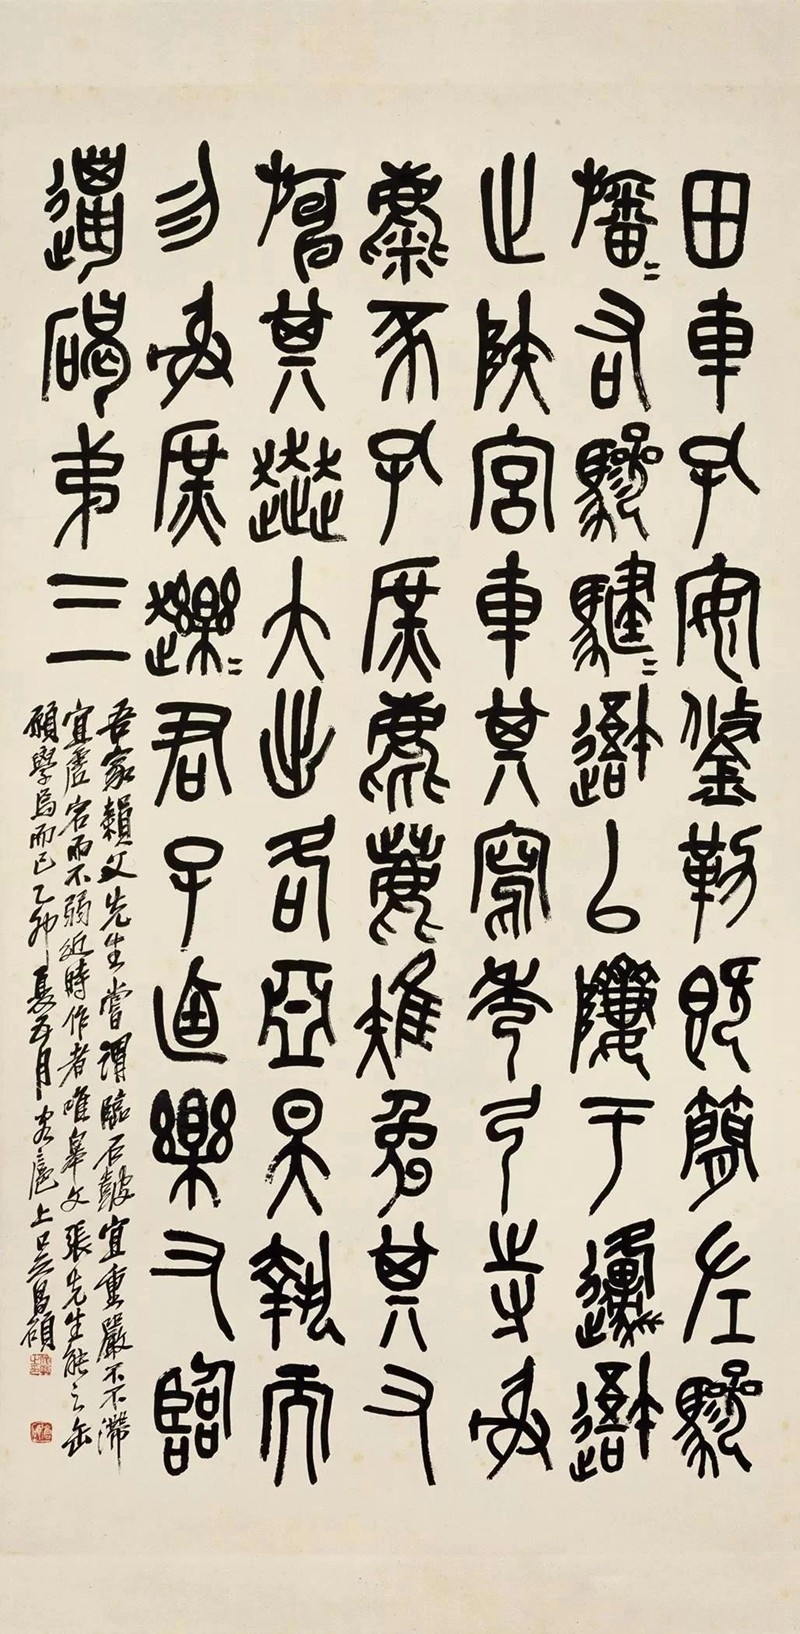 田車孔安鋚勒既簡左驂
旛〻右驂騝〻避以隮于邍避
止陝宮車其寫秀弓寺射
麋豕孔庶麀鹿雉兔其又
其奔大出各亞昊執而
勿射庶趯〻君子逌樂又臨
邋碣弟三
吾家父先生嘗謂臨石鼓宜重嚴而不滯
宜虛宕而不弱近時作者唯皋文張先生能之缶
願學焉而已乙卯夏五月客滬上吳昌碩